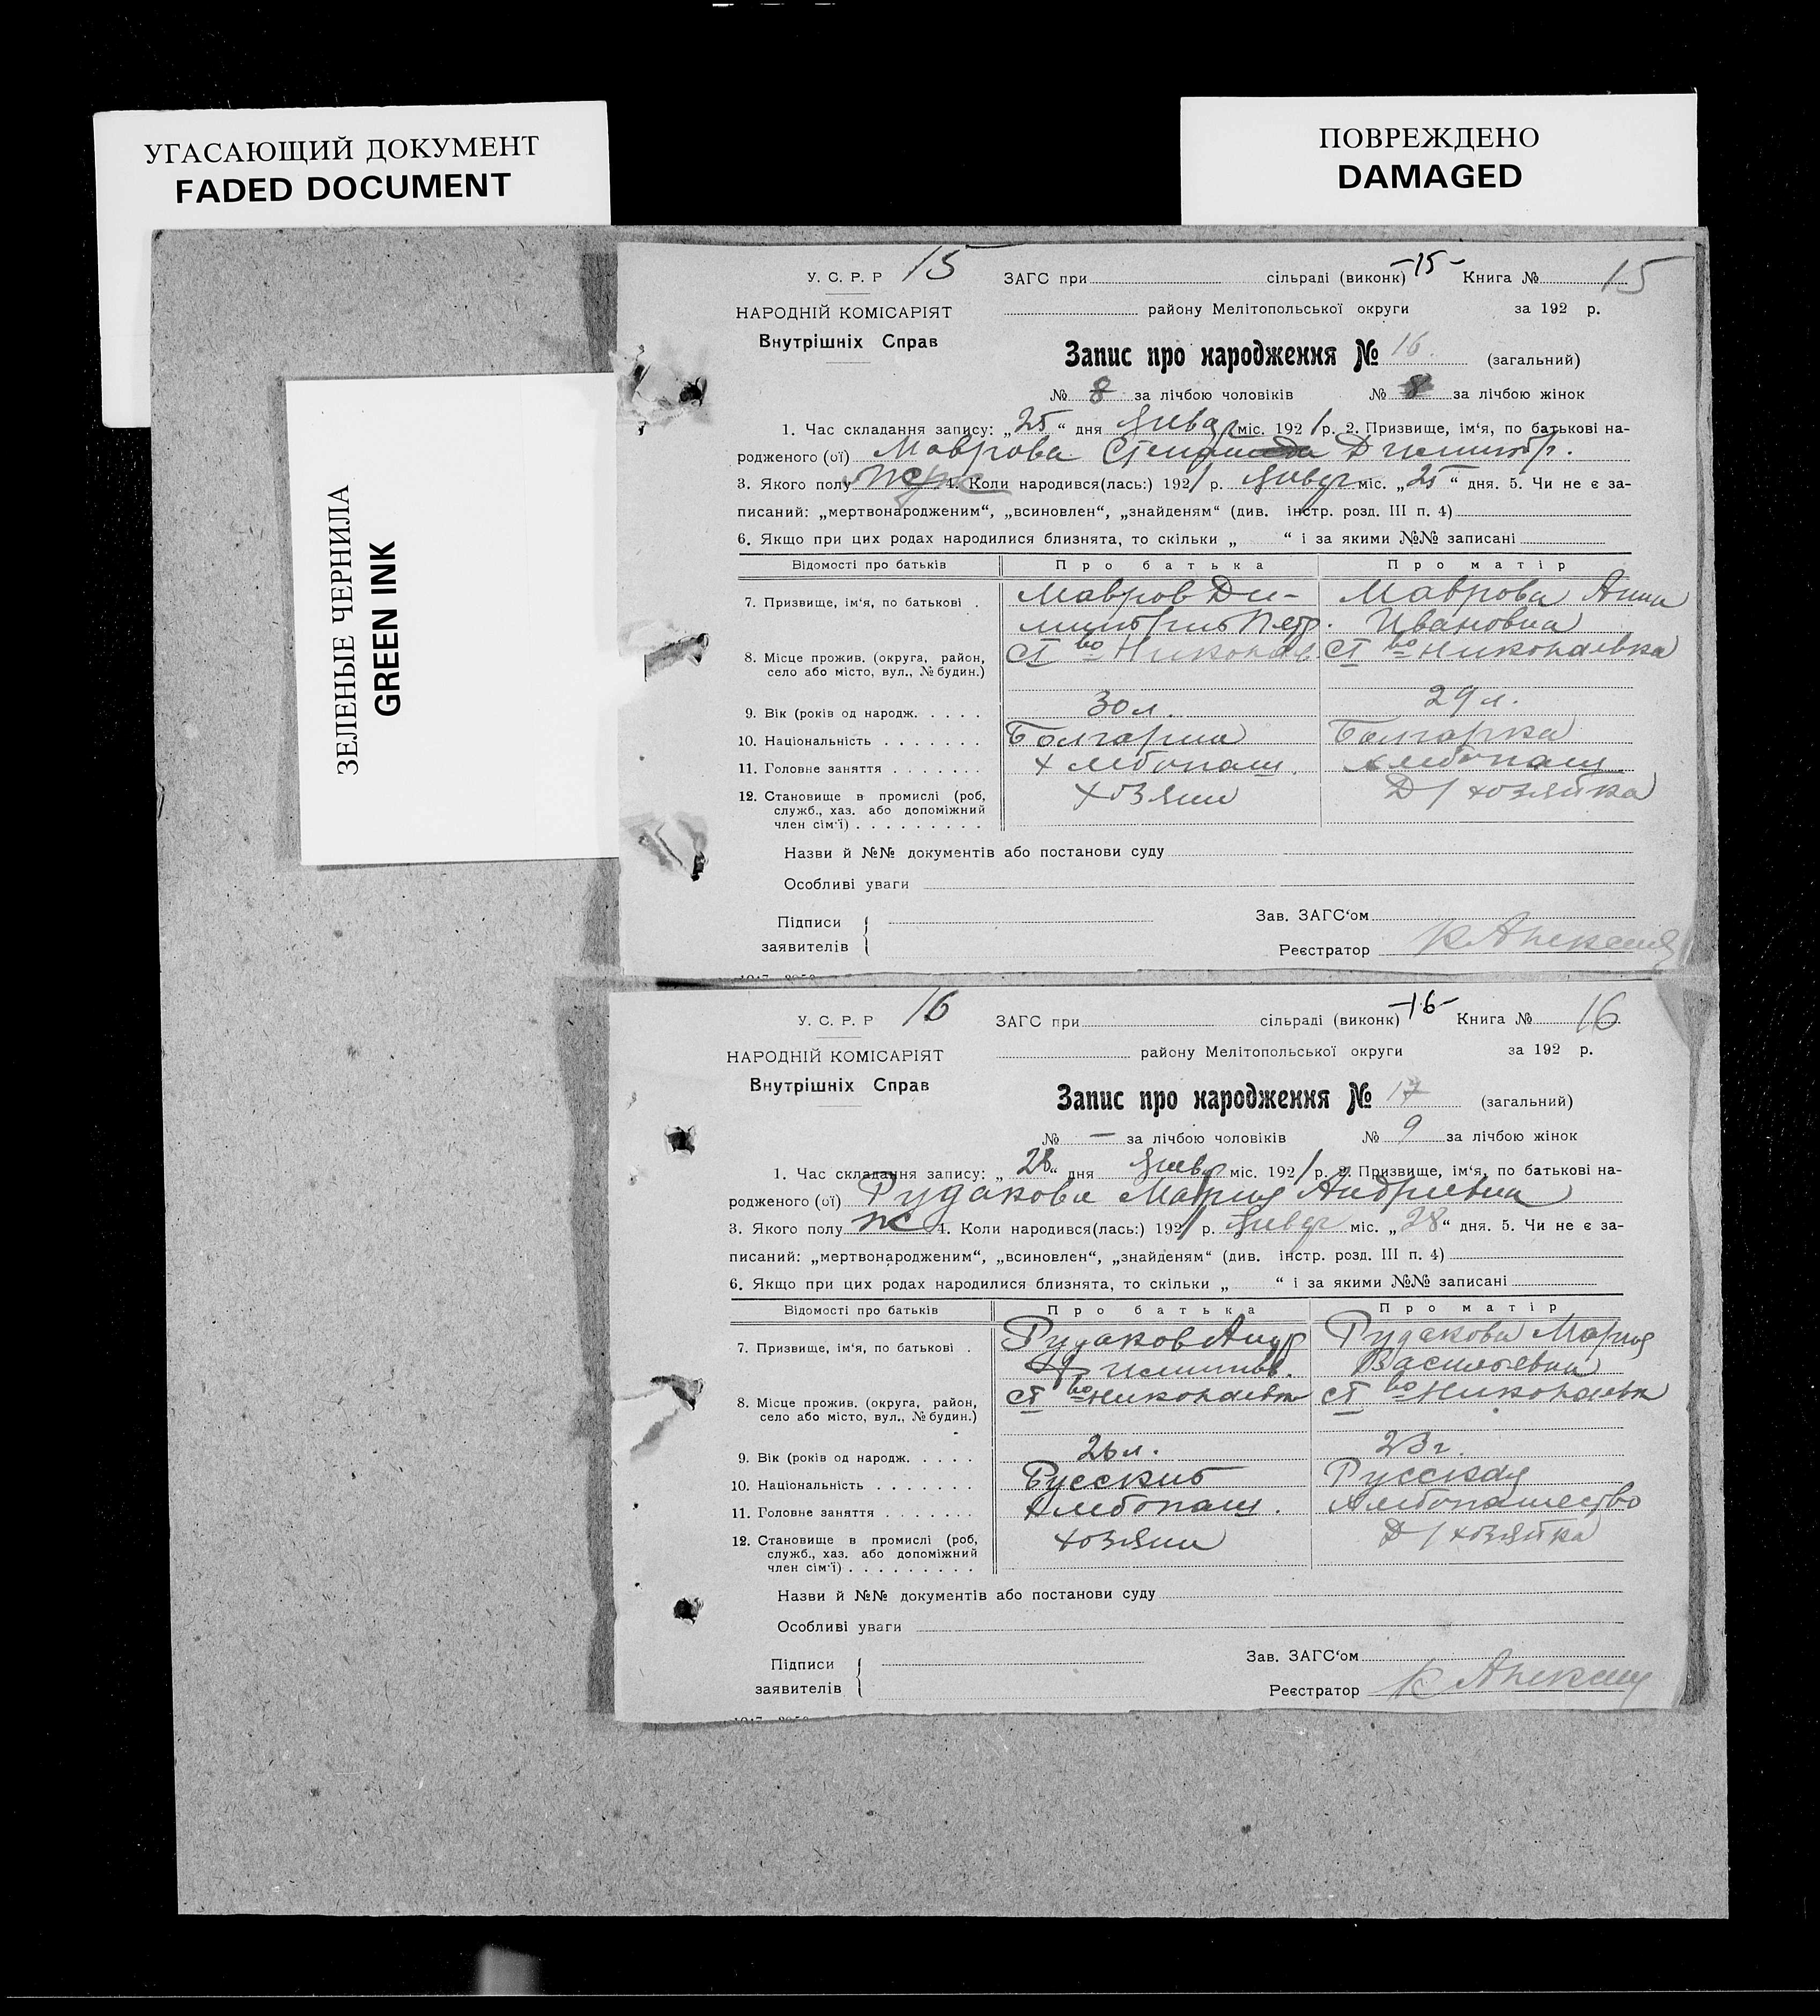 УГАСАЮЩИЙ ДОКУМЕНТ
FADED DOCUMENT
ПОВРЕЖДЕНО
DAMAGED
ЗЕЛЕНЫЕ ЧЕРНИЛА
GREEN INK
У. С. Р. Р 15 ЗАГС при сільраді (виконк) -15- Книга № 15
НАРОДНІЙ КОМІСАРІЯТ району Мелітопольської округи за 192 р.
Внутрішніх Справ
Запис про народження № 16 (загальний)
№ 8 за лічбою чоловіків № 8 за лічбою жінок
1. Час складання запису: „25“ дня Январ міс. 1921 р. 2. Призвище, ім‘я, по батькові на-
родженого (ої) Маврова Степанида Димитр.
3. Якого полу 4. Коли народився(лась:) 1921 р. Январ міс. „25“ дня. 5. Чи не є за-
писаний: „мертвонародженим“, „всиновлен“, „знайденям“ (див. інстр. розд. III п. 4)
6. Якщо при цих родах народилися близнята, то скільки „ “ і за якими №№ записані
Відомості про батьків Про батька Про матір
7. Призвище, ім‘я, по батькові . Мавров Ди- Маврова Анна
митрий Петр. Ивановна
8. Місце прожив. (округа, район, Ст во Николаев. Ст во Николаевка
село або місто, вул., № будин.)
9. Вік (років од народж. . . . . 30 л. 29 л.
10. Національність . . . . . . . Болгарин Болгарка
11. Головне заняття . . . . . . . Хлебопаш. Хлебопаш
12. Становище в промислі (роб, Хозяин Д/хозяйка
служб., хаз. або допоміжний
член сім‘ї) . . . . . . . . .
Назви й №№ документів або постанови суду
Особливі уваги
Підписи Зав. ЗАГС‘ом
заявителів Реєстратор
У. С. Р. Р 16 ЗАГС при сільраді (виконк) -16- Книга № 16
НАРОДНІЙ КОМІСАРІЯТ району Мелітопольської округи за 192 р.
Внутрішніх Справ
Запис про народження № 17 (загальний)
№ — за лічбою чоловіків № 9 за лічбою жінок
1. Час складання запису: „28“ дня Январ міс. 1921 р. 2. Призвище, ім‘я, по батькові на-
родженого (ої) Рудакова Мария Андриевна
3. Якого полу ж 4. Коли народився(лась:) 1921 р. Январ міс. „28“ дня. 5. Чи не є за-
писаний: „мертвонародженим“, „всиновлен“, „знайденям“ (див. інстр. розд. III п. 4)
6. Якщо при цих родах народилися близнята, то скільки „ “ і за якими №№ записані
Відомості про батьків Про батька Про матір
7. Призвище, ім‘я, по батькові . Рудаков Андр Рудакова Мария
Васильевна
8. Місце прожив. (округа, район, Ст во Николаевк Ст во Николаевк
село або місто, вул., № будин.)
9. Вік (років од народж. . . . . 26 л. 23 г.
10. Національність . . . . . . . Русский Русская
11. Головне заняття . . . . . . . Хлебопаш. Хлебопашество
12. Становище в промислі (роб, Хозяин Д/хозяйка
служб., хаз. або допоміжний
член сім‘ї) . . . . . . . . .
Назви й №№ документів або постанови суду
Особливі уваги
Підписи Зав. ЗАГС‘ом
заявителів Реєстратор